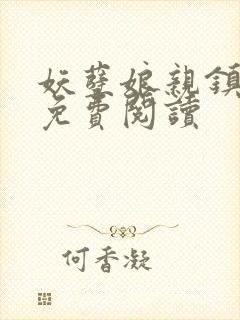 妖孽娘親鎮
免費閱讀
何香凝